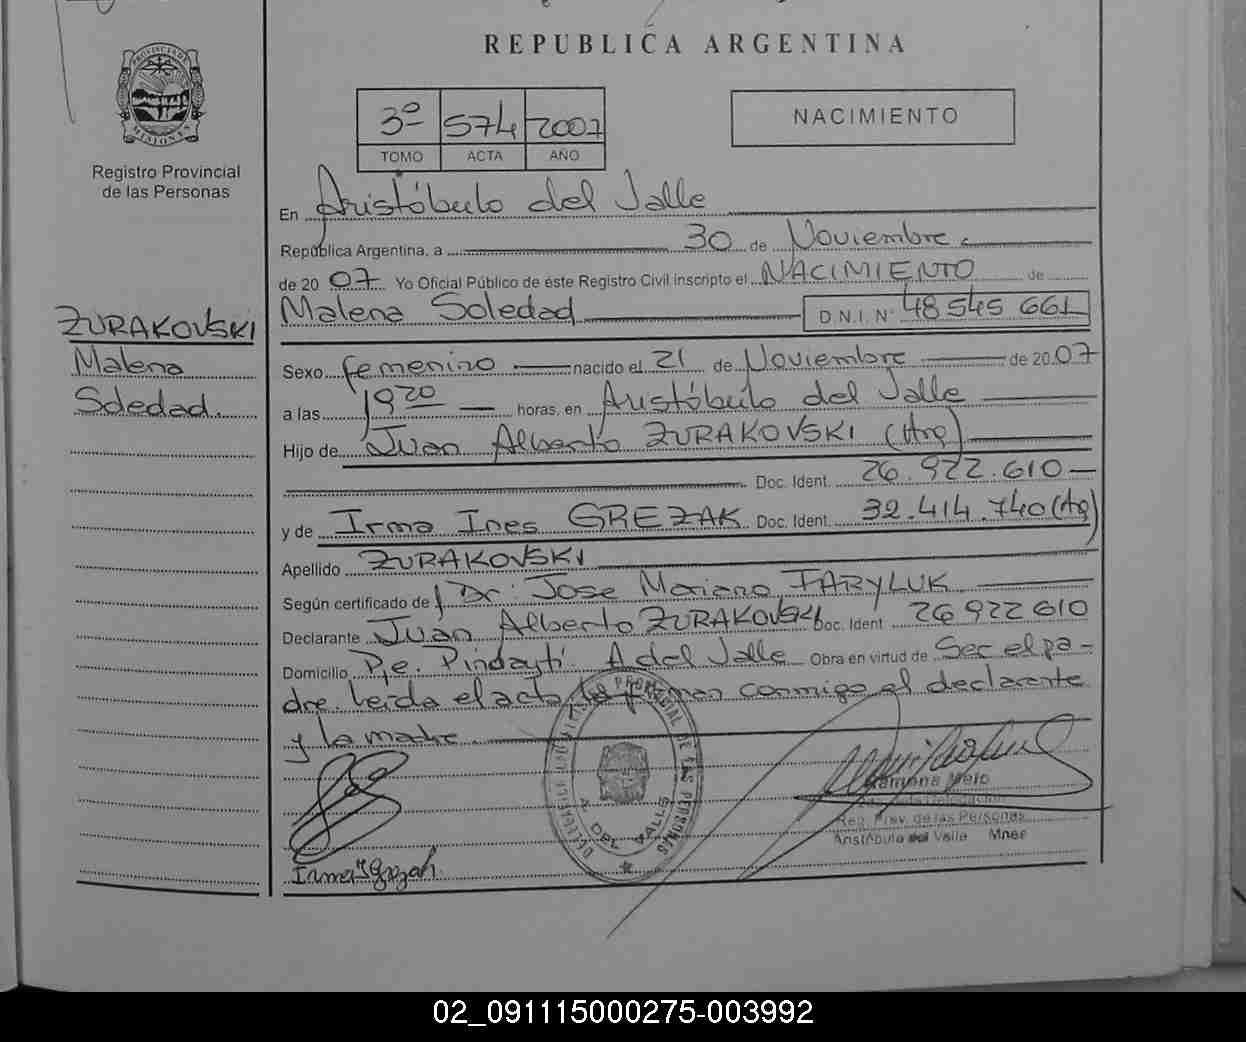 REPUBLICA ARGENTINA
PROVINCIA DE MISIONES
Registro Provincial
de las Personas
3º 574 2007
TOMO ACTA AÑO
NACIMIENTO
En Aristóbulo del Valle
República Argentina, a 30 de Noviembre
de 2007 Yo Oficial Público de éste Registro Civil inscripto el NACIMIENTO de
Malena Soledad D.N.I. Nº 48 545 661
ZURAKOVSKI
Malena
Soledad.
Sexo femenino nacido el 21 de Noviembre de 2007
a las 19 20 horas, en Aristóbulo del Valle
Hijo de Juan Alberto ZURAKOVSKI (Arg)
Doc. Ident. 26.922.610
y de Irma Ines GREZAK Doc. Ident. 32.414.740 (Arg)
Apellido ZURAKOVSKI
Según certificado de Dr. Jose Mariano TARYLUK
Declarante Juan Alberto ZURAKOVSKI Doc. Ident 26 922 610
Domicilio Pje. Pindaytí A del Valle Obra en virtud de Ser el pa-
dre. Leída el acta la firman conmigo el declarante
y la madre
PROVINCIAL DE LAS PERSONAS
A. DEL VALLE
Ramona Melo
Reg. Prov. de las Personas
Aristóbulo del Valle Mnes
Irma I Grezak
02_091115000275-003992